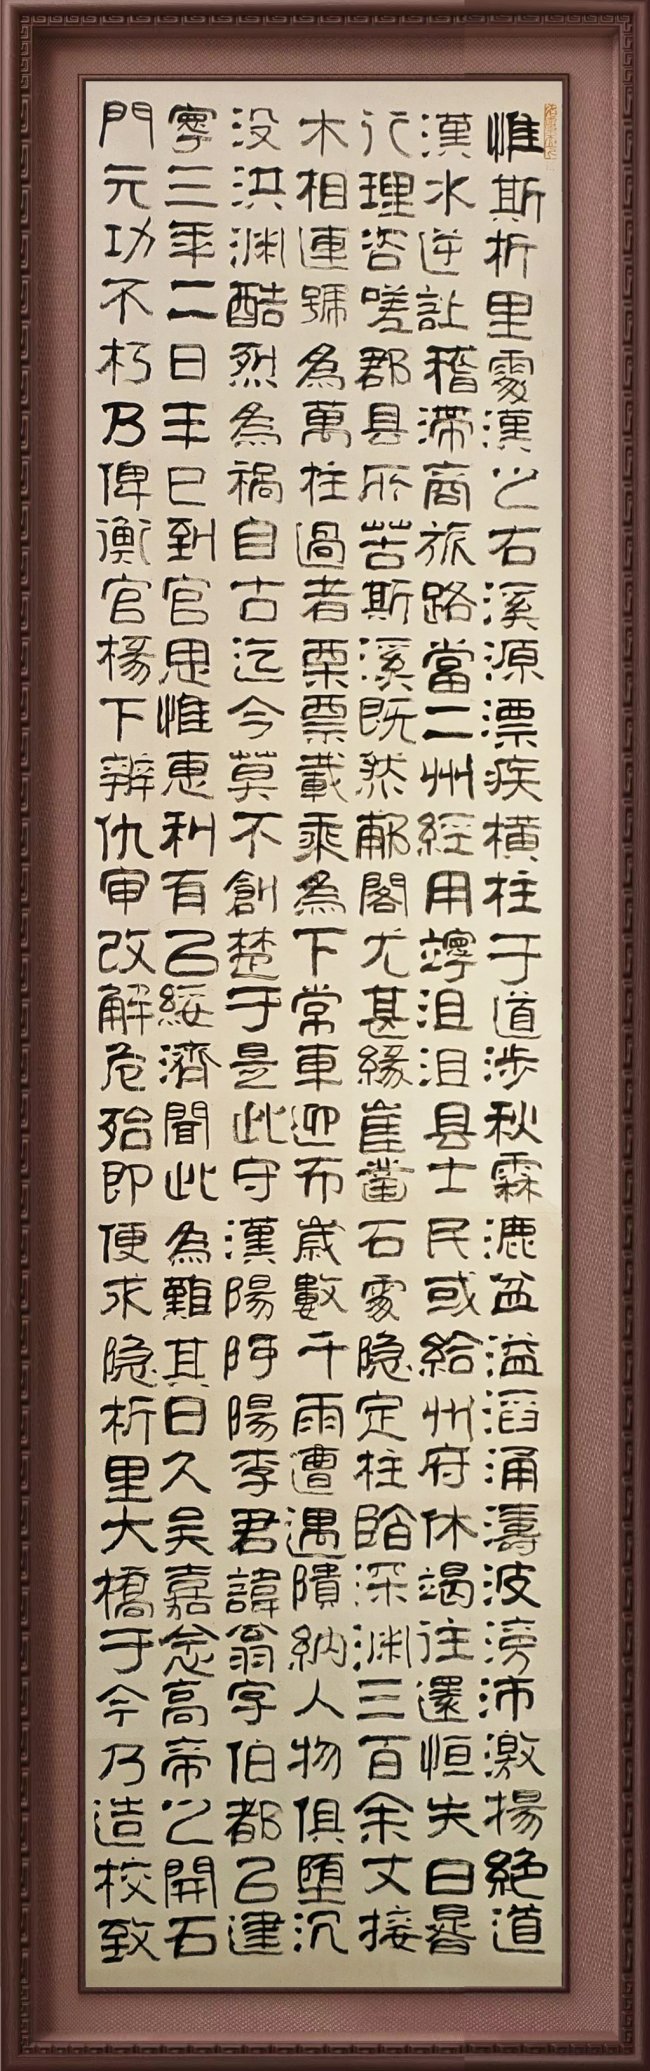 惟斯析里處漢之右溪源漂疾横柱于道涉秋霖漉盆溢滔涌濤波滂沛激揚絕道
漢水逆稽滯商旅路當二州經用沮沮县士民或給州府休谒往還恒失日晷
行理咨嗟郡县所苦斯溪既然郙閣尤甚緣崖鑿石處隐定柱臨深渊三百余丈接
木相連號為萬柱過者栗栗載乘為下常車迎布歲數千雨遭遇隤納人物俱堕沉
没洪渊酷烈為禍自古迄今莫不創楚于是此守漢陽阿陽李君諱翁字伯都㠯建
寧三年二日辛巳到官思惟惠利有㠯綏濟聞此為難其日久矣嘉念高帝之開石
門元功不朽乃俾衡官楊下辨仇审改解危殆即便求隐析里大橋于今乃造校致